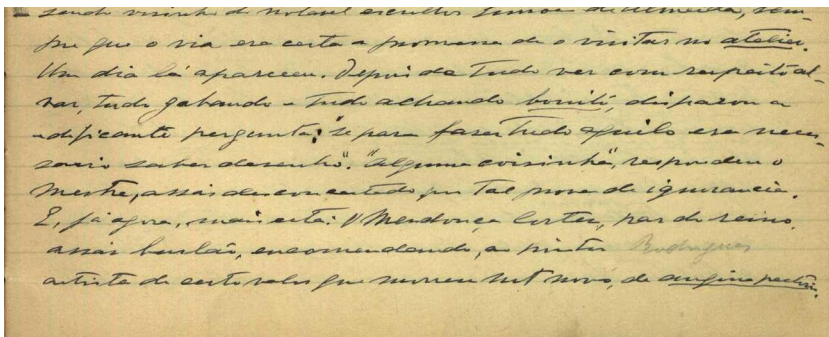 sendo visinho do notavel escultor Simões de Almeida, sem-
pre que o via era certa a promessa de o visitar no atelier.
Um dia lá apareceu. Depois de tudo ver com respeito al-
var, tudo gabando e tudo achando bonito, disparou a
edificante pergunta: "se para fazer tudo aquilo era neces-
sario saber desenho". "Alguma coisinha", respondeu o
Mestre, assás desconcertado, por tal prova de ignorancia.
E, já agora, mais esta: O Mendonça Cortez, par do reino,
assás burlão, encomendando, ao pintor Rodrigues
artista de certo valor que morreu mt novo, de angina pectoris.